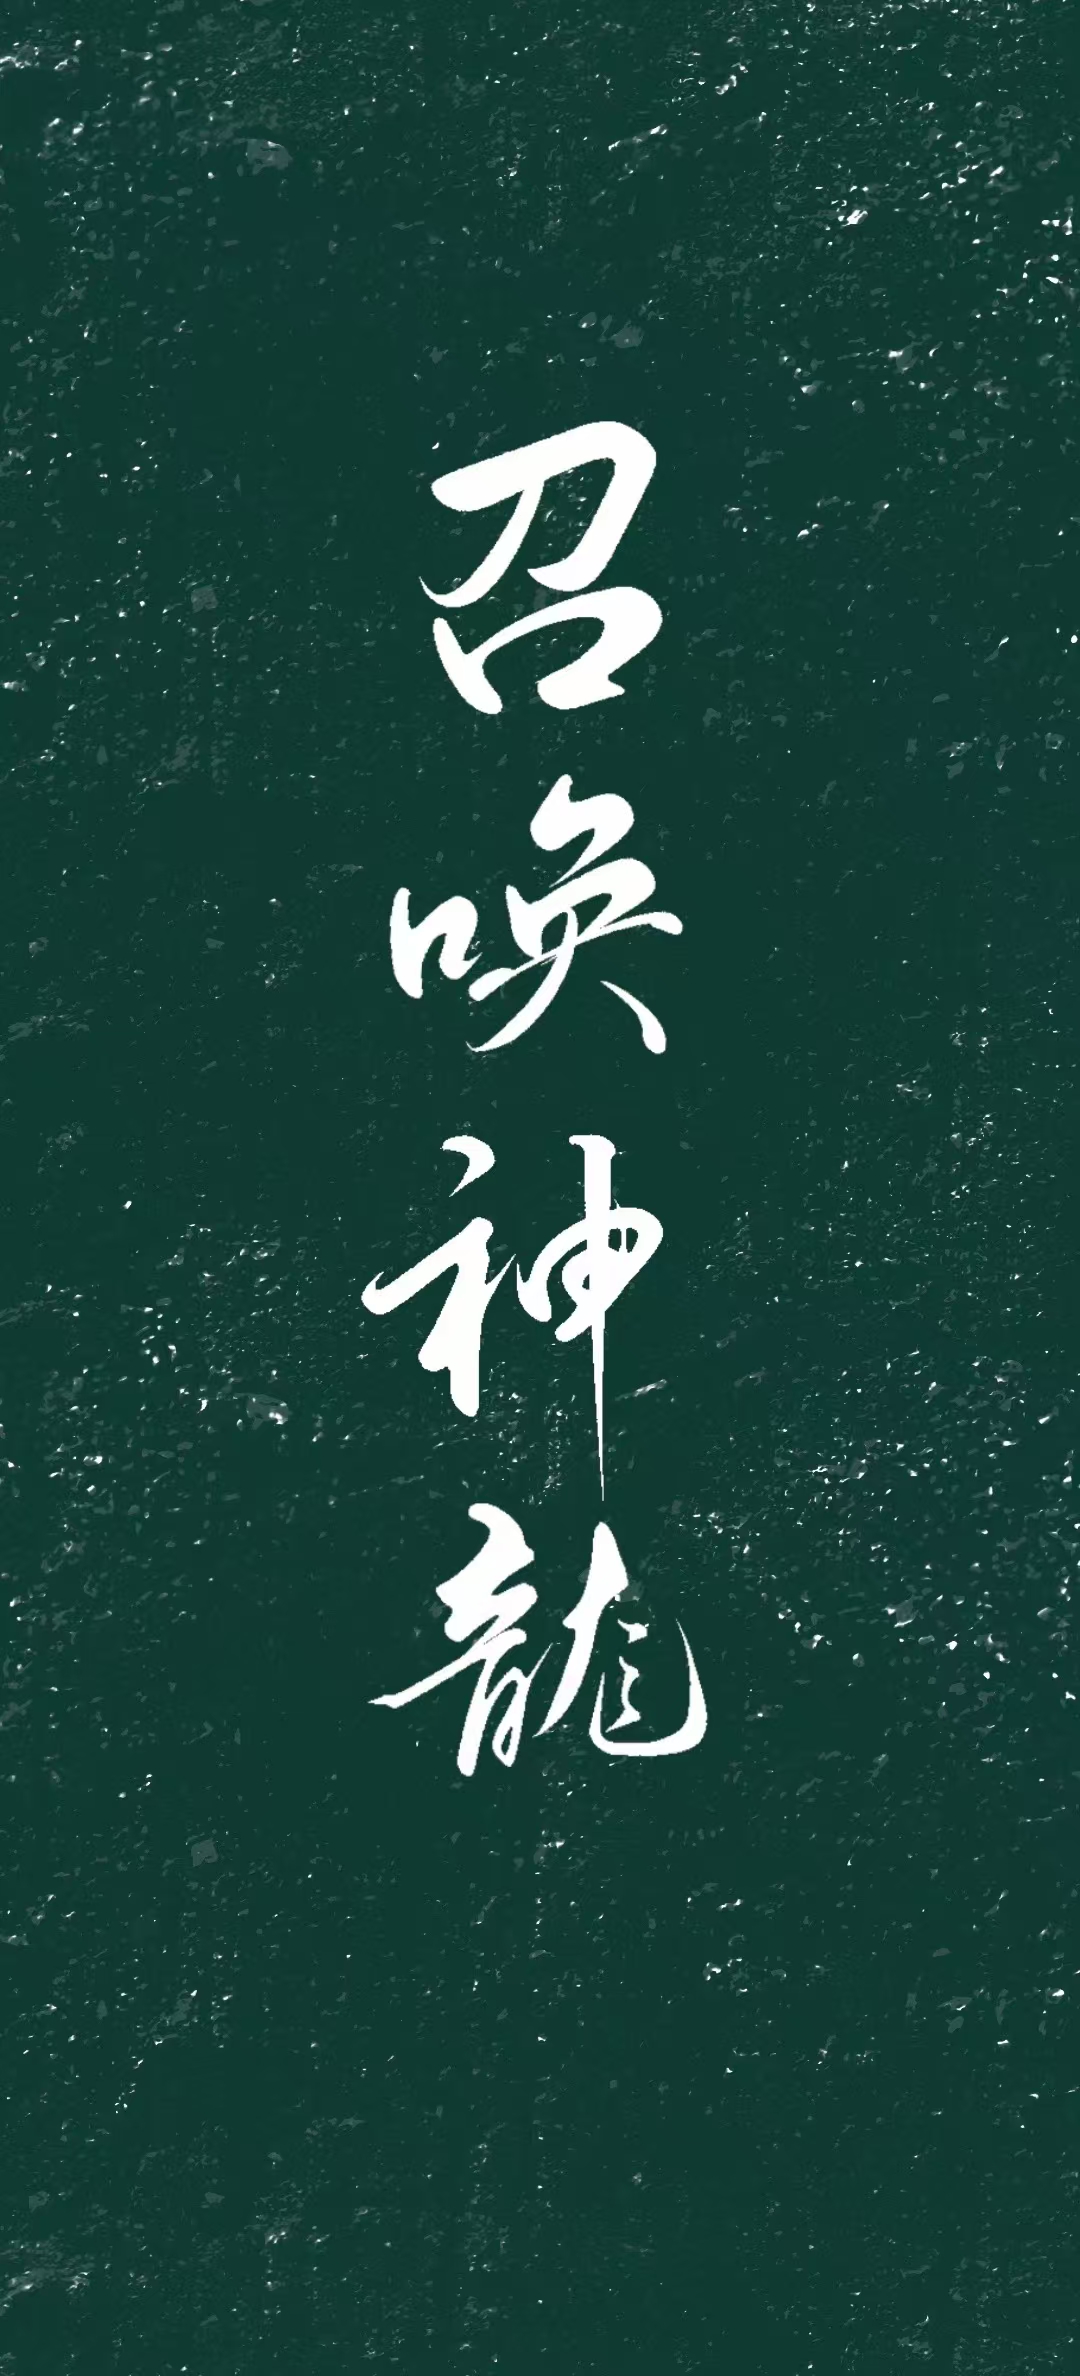 召唤神龍